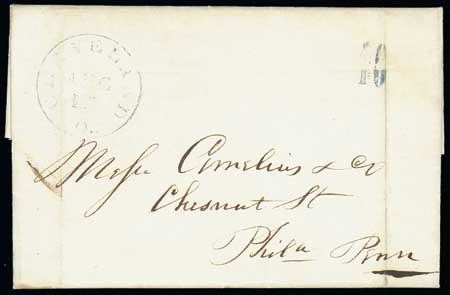 CLEVELAND O.
AUG
10
Messrs Cornelius & Co
Chesnut St
Phila Penn